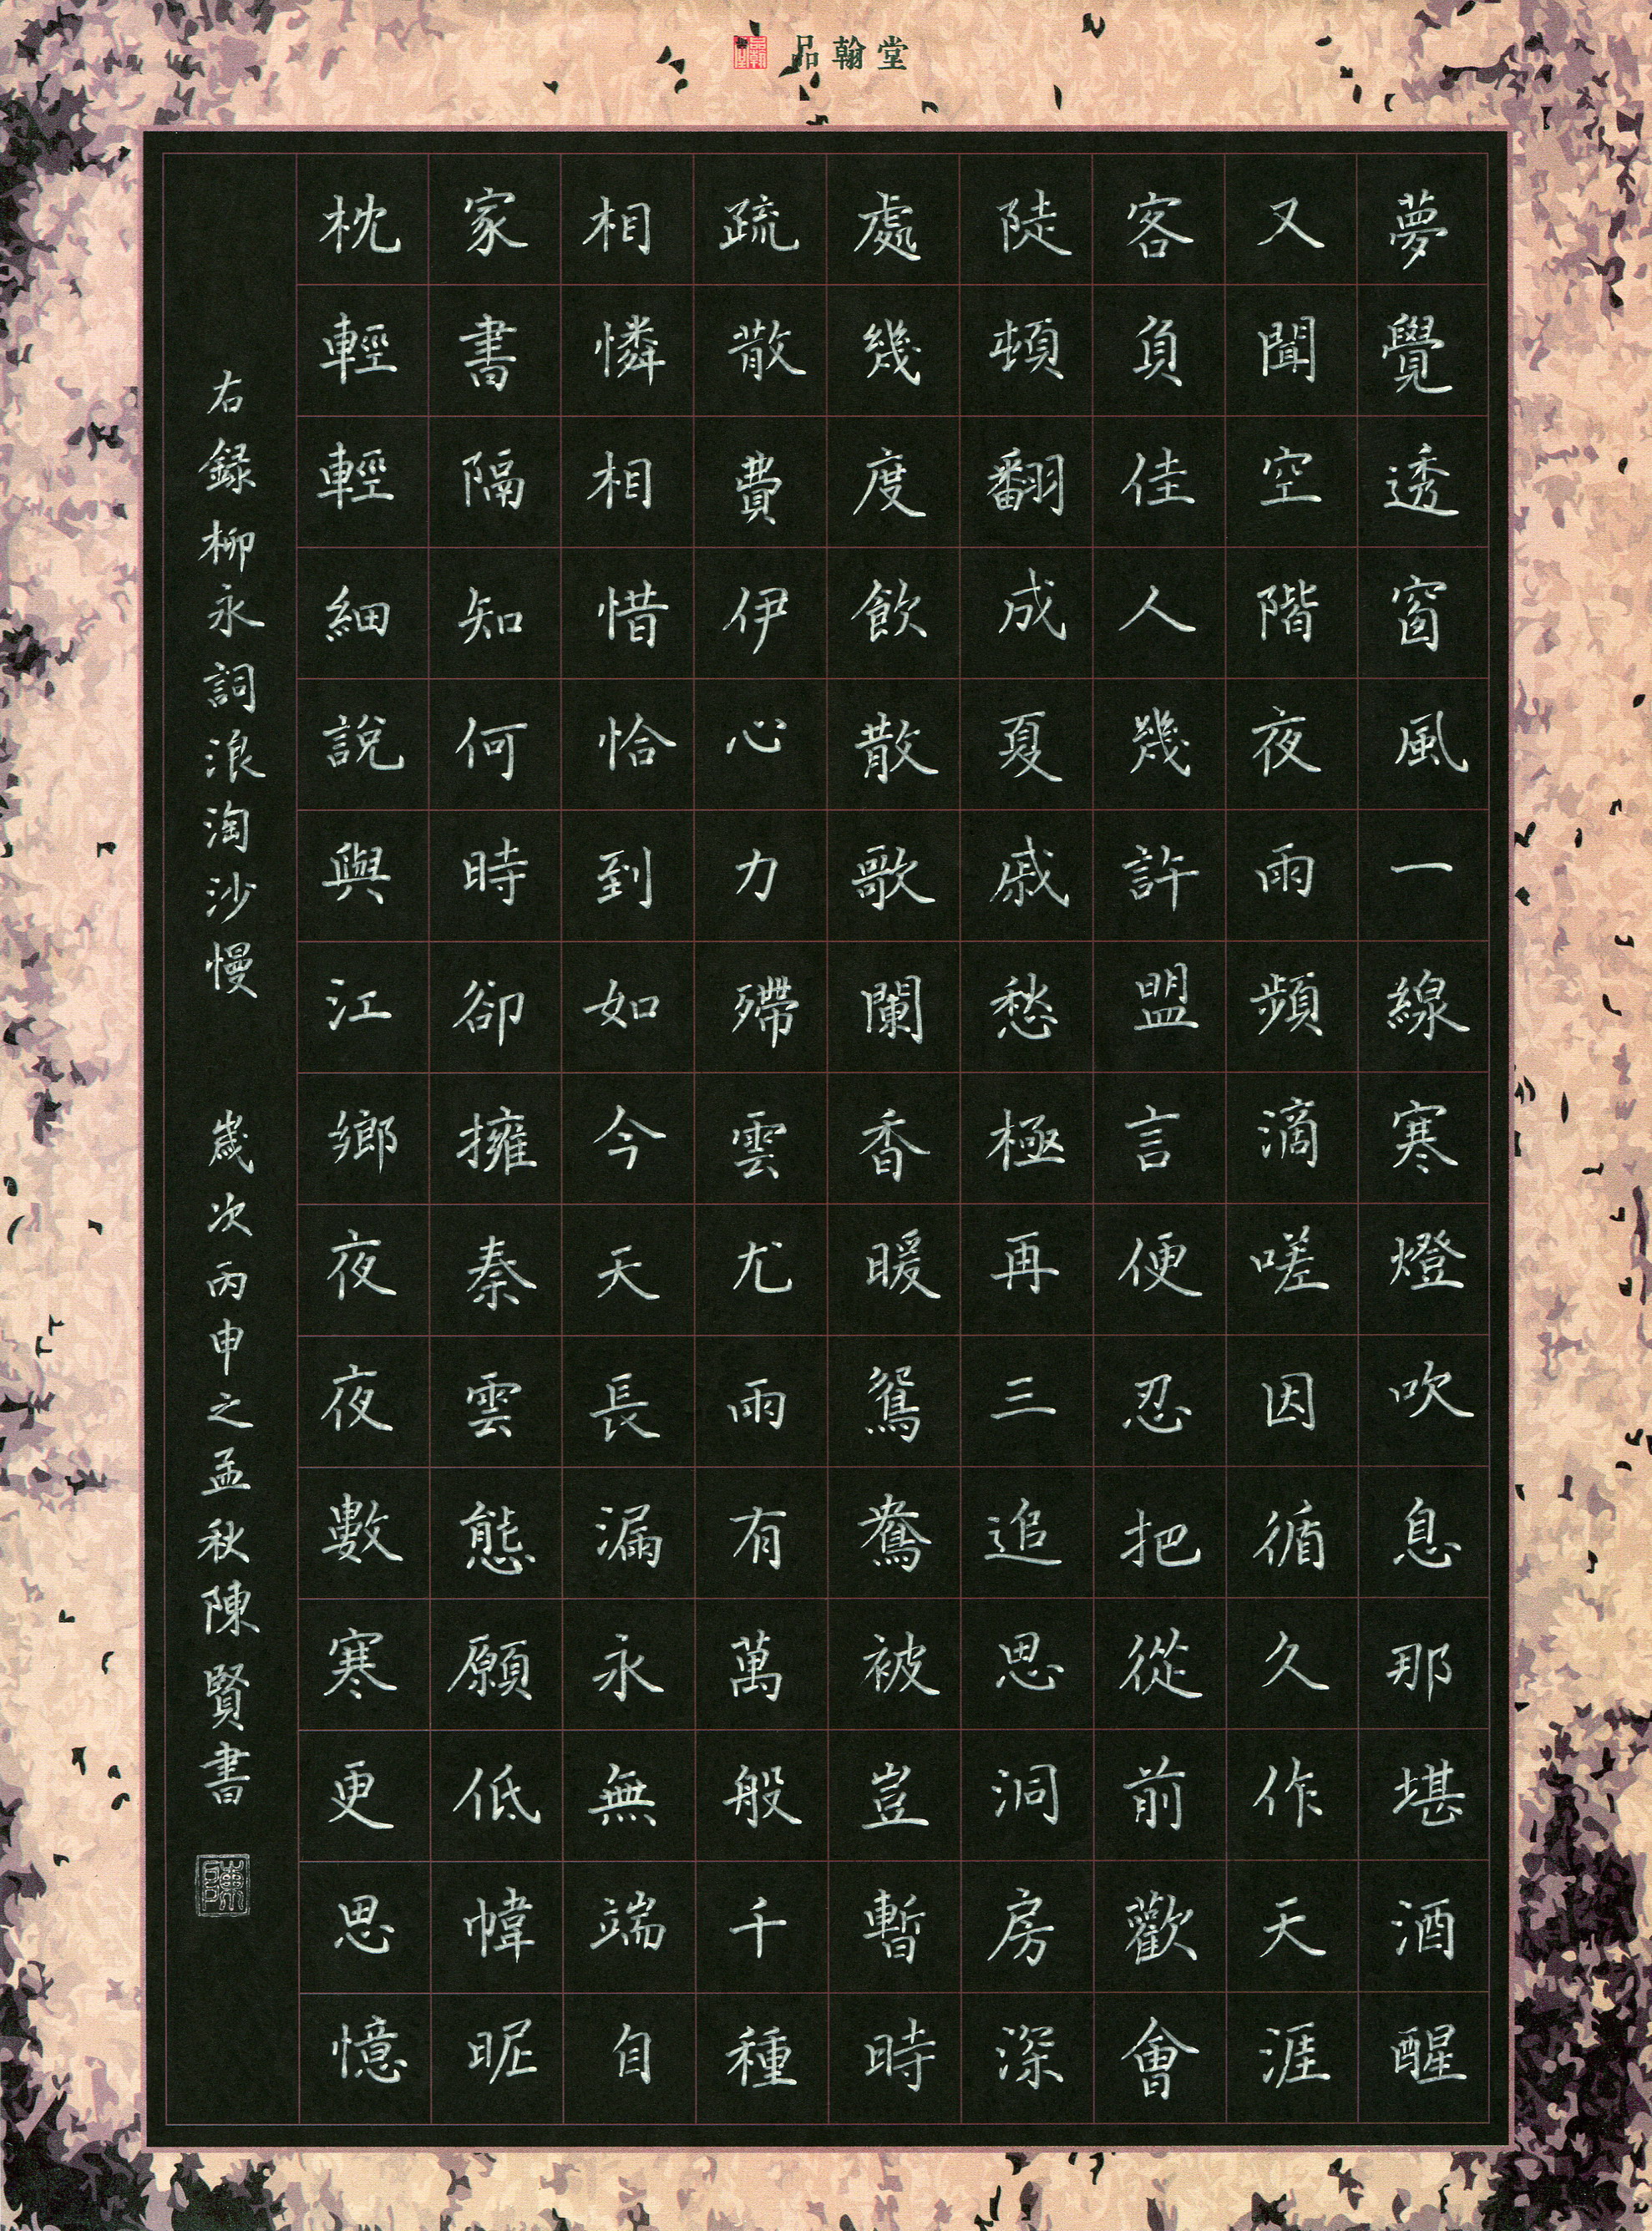 品翰堂
夢覺透窗風一線寒燈吹息那堪酒醒
又聞空階夜雨頻滴嗟因循久作天涯
客負佳人幾許盟言便忍把從前歡會
陡頓翻成夏戚愁極再三追思洞房深
處幾度飲散歌闌香暖鴛鴦被豈暫時
疏散費伊心力殢雲尤雨有萬般千種
相憐相惜恰到如今天長漏永無端自
家書隔知何時卻擁秦雲態願低幃昵
枕輕輕細說與江鄉夜夜數寒更思憶
右錄柳永詞浪淘沙慢 歲次丙申之孟秋陳賢書
陳